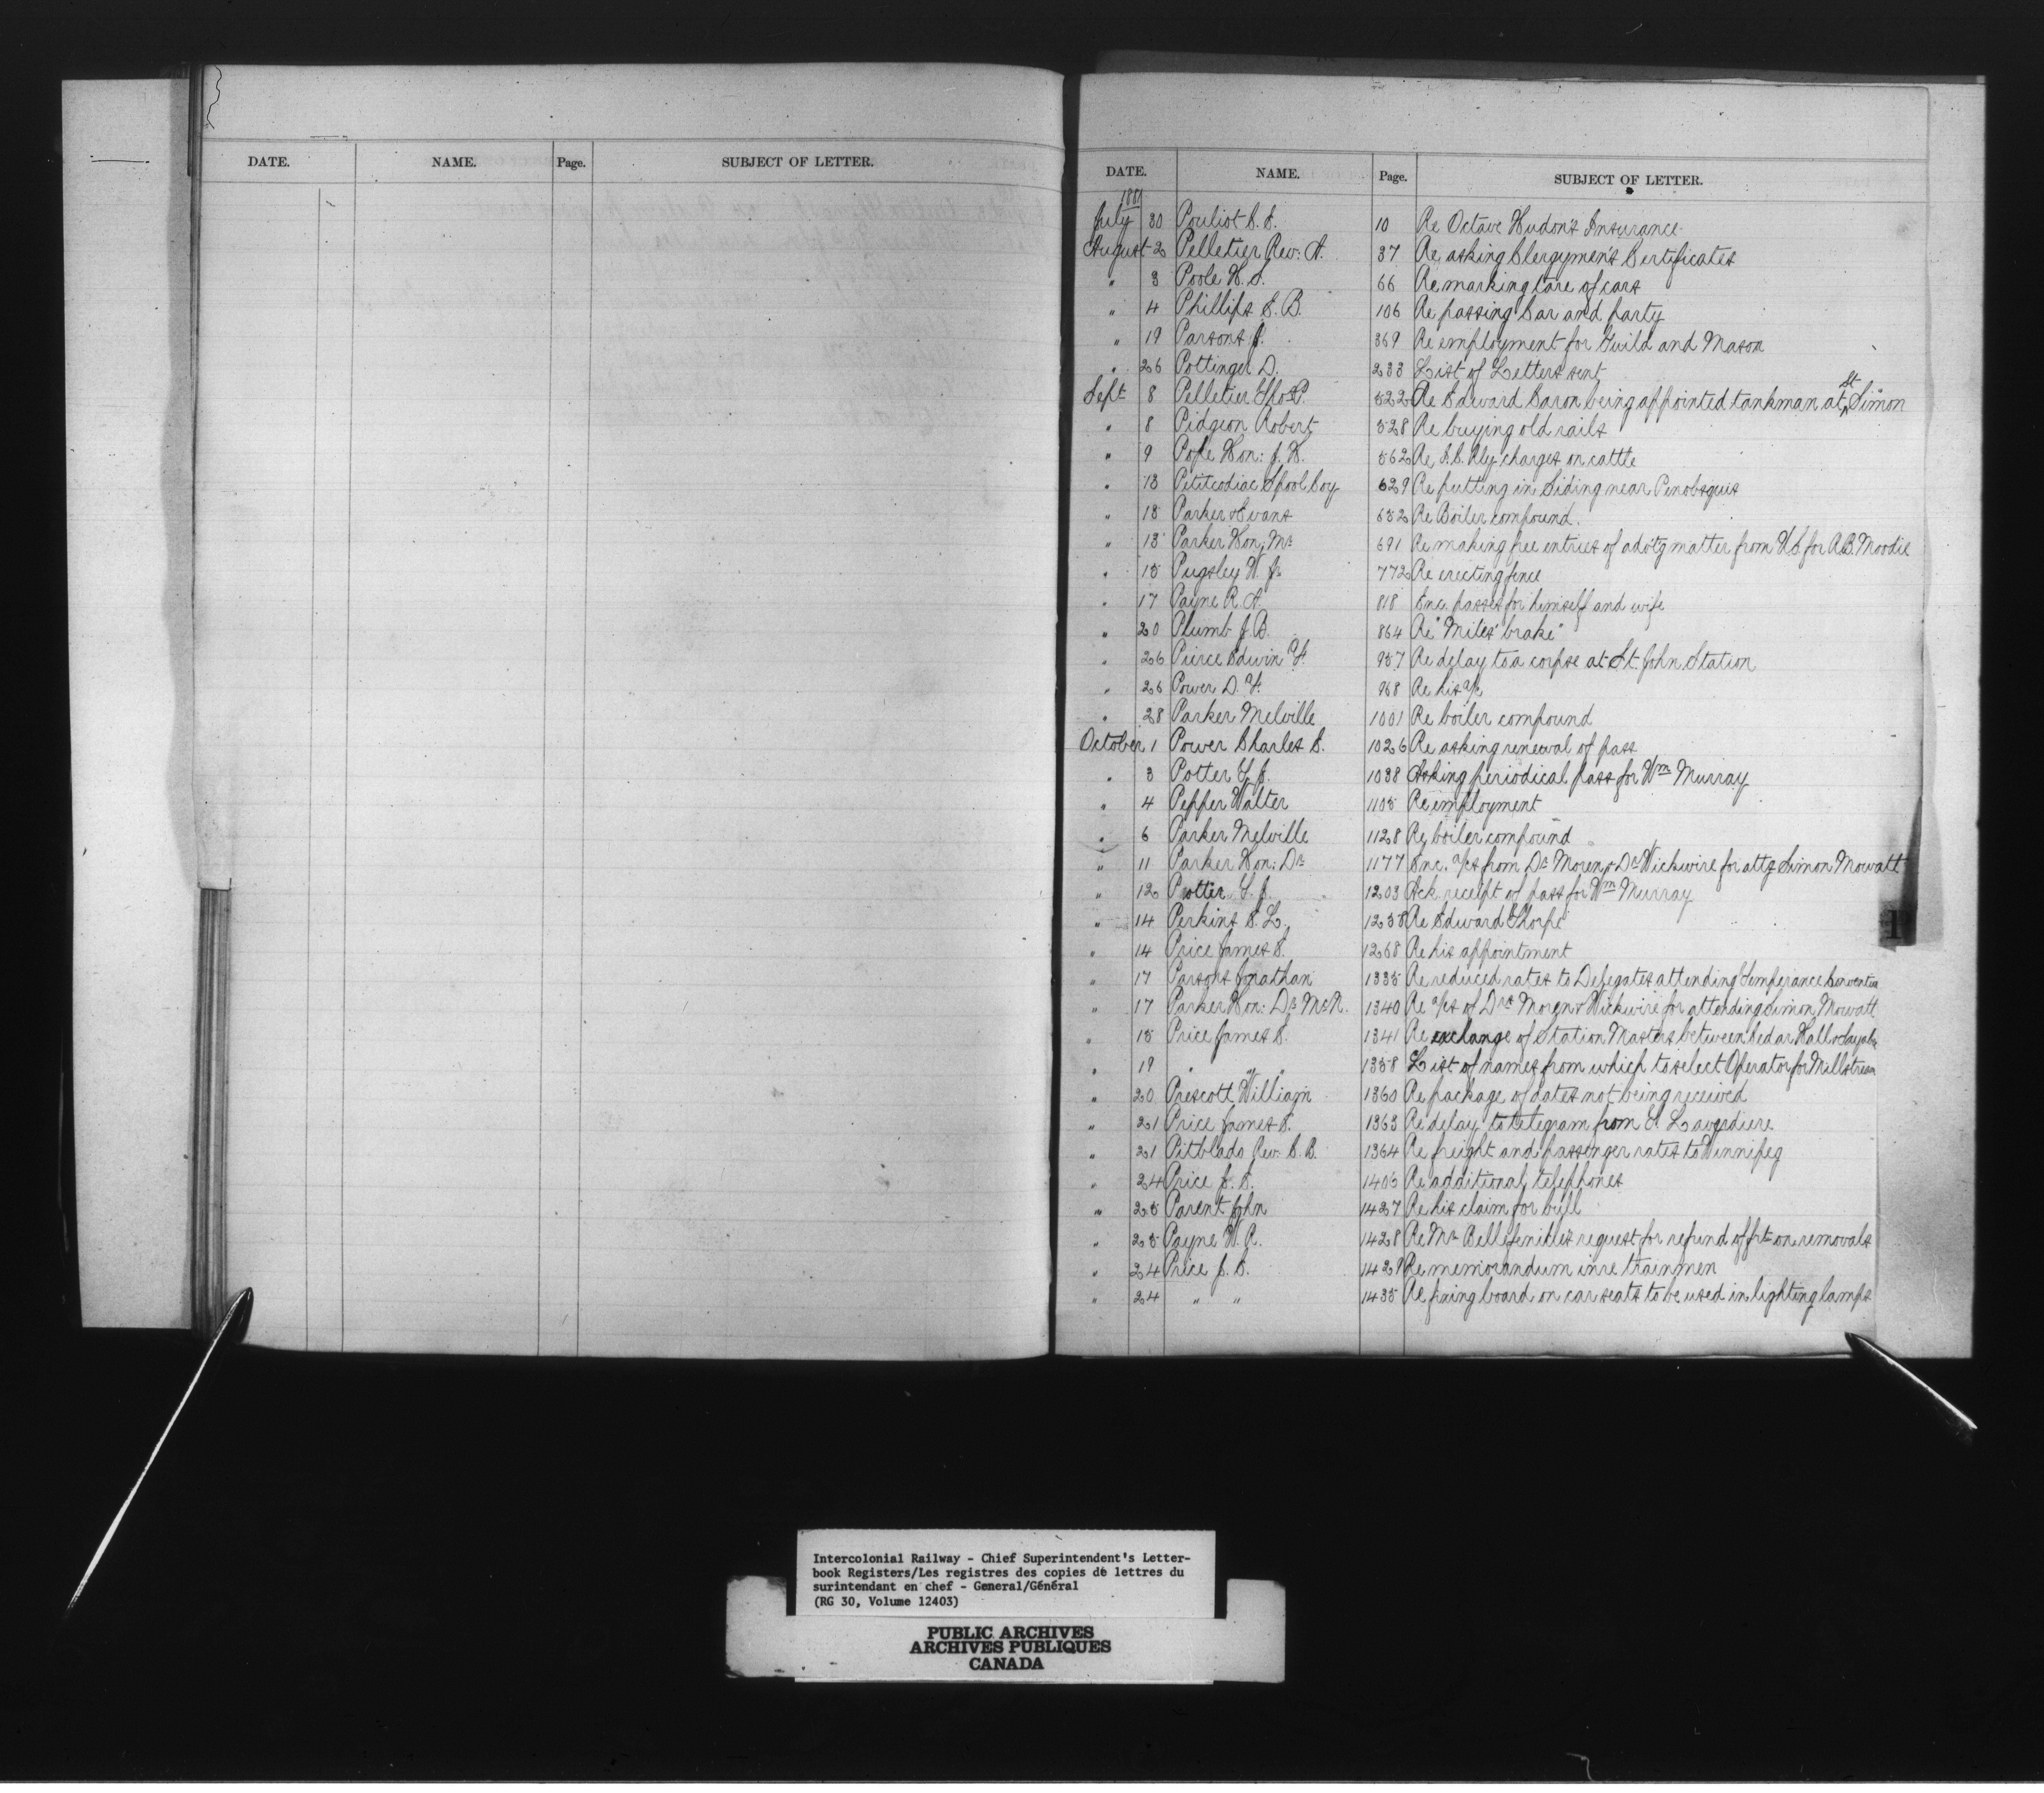 DATE. NAME. Page. SUBJECT OF LETTER.
DATE. NAME. Page. SUBJECT OF LETTER.
1881
July 30 Pouliot C. E. 10 Re Octave Hudon's Insurance
August 2 Pelletier Rev: A. 37 Re asking Clergymen's Certificates
" 3 Poole H. S. 66 Re marking Care of cars
" 4 Phillips E. B. 106 Re passing Car and party
" 19 Parsons J. 369 Re employment for Guild and Mason
" 26 Pottinger D. 233 List of Letters sent
Sept 8 Pelletier Thos P. 522 Re Edward Caron being appointed tankman at St Simon
" 8 Pidgeon Robert 528 Re buying old rails
" 9 Pope Hon: J. H. 562 Re I. C. Rly charges on cattle
" 13 Petitcodiac Spool Coy 629 Re putting in Siding near Penobsquis
" 13 Parker & Evans 652 Re Boiler compound.
" 13 Parker Hon: Mr 691 Re making free entries of advtg matter from U.S. for A.B. Moodie
" 15 Pugsley W. Jr 772 Re erecting fence
" 17 Payne R. A. 818 Enc. passes for himself and wife
" 20 Plumb J. B. 864 Re "Mites' brake"
" 26 Pierce Edwin F. 957 Re delay to a corpse at St. John Station
" 26 Power D. F. 968 Re his a/c
" 28 Parker Melville 1001 Re boiler compound
October 1 Power Charles E. 1026 Re asking renewal of pass
" 3 Potter T. J. 1038 Asking periodical pass for Wm Murray
" 4 Pepper Walter 1105 Re employment
" 6 Parker Melville 1128 Re boiler compound
" 11 Parker Hon: Dr 1177 Enc. a/cs from Dr Moren & Dr Wickwire for attg Simon Mowatt
" 12 Potter T. J. 1203 Ack receipt of pass for Wm Murray
" 14 Perkins C. L. 1258 Re Edward Thorpe
" 14 Price James E. 1268 Re his appointment
" 17 Parsons Jonathan 1335 Re reduced rates to Delegates attending Temperance Convention
" 17 Parker Hon: Dr McN. 1340 Re a/cs of Drs Moren & Wickwire for attending Simon Mowatt
" 15 Price James E. 1341 Re exchange of Station Masters between Cedar Hall &
" 19 " " " 1358 List of names from which to select Operator for Millstream
" 20 Prescott William 1360 Re package of dates not being received
" 21 Price James E. 1363 Re delay to telegram from E. Laverdiere
" 21 Pitblado Rev: C. B. 1364 Re freight and passenger rates to Winnipeg
" 24 Price J. E. 1405 Re additional telephones
" 25 Parent John 1427 Re his claim for bull
" 25 Payne W. R. 1428 Re Mr Bellefenille's request for refund of frt on removals
" 24 Price J. E. 1429 Re memorandum in re trainmen
" 24 " " 1435 Re fixing board on car seats to be used in lighting lamps
Intercolonial Railway - Chief Superintendent's Letter-
book Registers/Les registres des copies de lettres du
surintendant en chef - General/Général
(RG 30, Volume 12403)
PUBLIC ARCHIVES
ARCHIVES PUBLIQUES
CANADA